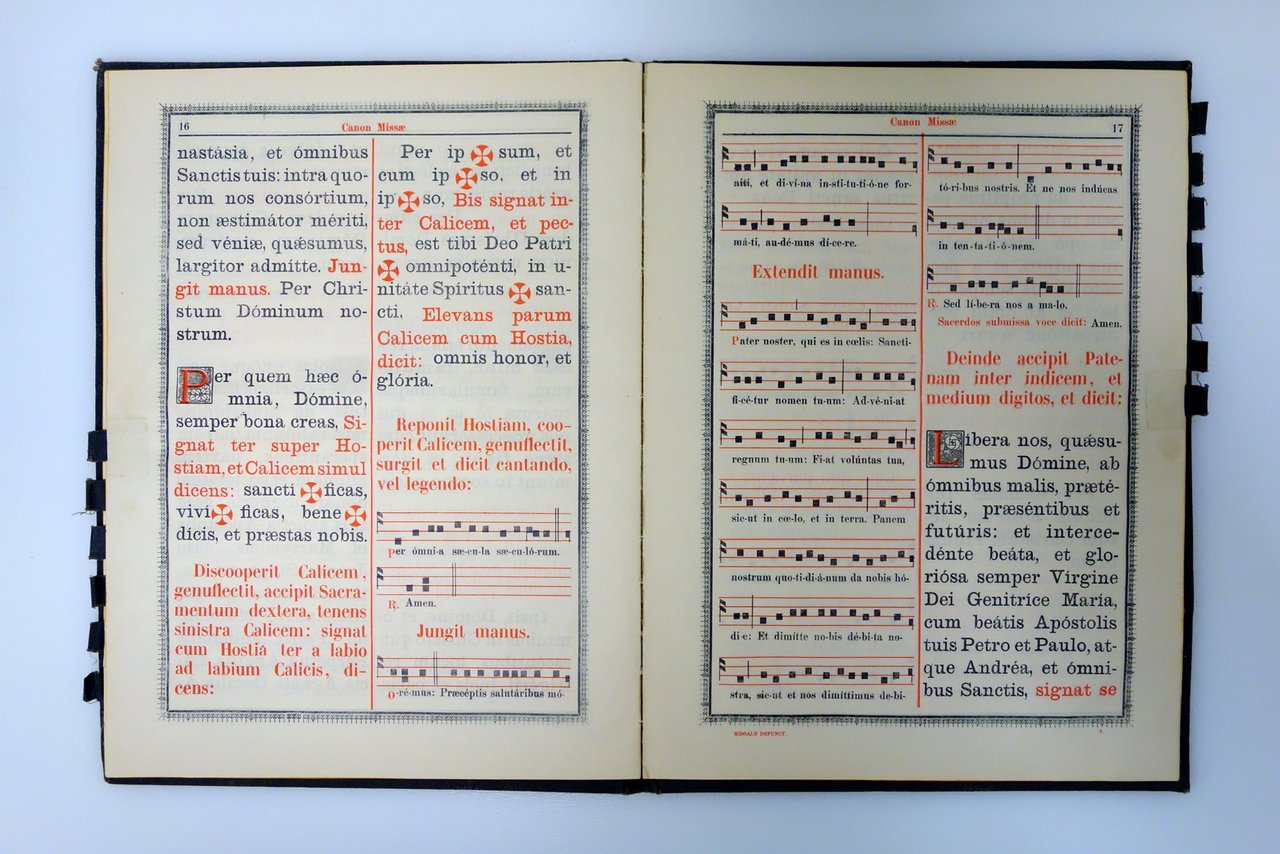 16
Canon Missæ
nastásia, et ómnibus
Sanctis tuis: intra quo-
rum nos consórtium,
non æstimátor mériti,
sed véniæ, quǽsumus,
largítor admítte. Jun-
git manus. Per Chri-
stum Dóminum no-
strum.
Per quem hæc ó-
mnia, Dómine,
semper bona creas, Si-
gnat ter super Ho-
stiam, et Calicem simul
dicens: sanctí ✠ ficas,
viví ✠ ficas, bene ✠
dícis, et præstas nobis.
Discooperit Calicem,
genuflectit, accipit Sacra-
mentum dextera, tenens
sinistra Calicem: signat
cum Hostia ter a labio
ad labium Calicis, di-
cens:
Per ip ✠ sum, et
cum ip ✠ so, et in
ip ✠ so, Bis signat in-
ter Calicem, et pec-
tus, est tibi Deo Patri
✠ omnipoténti, in u-
nitáte Spíritus ✠ san-
cti, Elevans parum
Calicem cum Hostia,
dicit: omnis honor, et
glória.
Reponit Hostiam, coo-
perit Calicem, genuflectit,
surgit et dicit cantando,
vel legendo:
Per ómni-a sæ-cu-la sæ-cu-ló-rum.
℟. Amen.
Jungit manus.
O-ré-mus: Præcéptis salutáribus mó-
Canon Missæ
17
niti, et di-ví-na in-sti-tu-ti-ó-ne for-
má-ti, au-dé-mus dí-ce-re.
Extendit manus.
Pater noster, qui es in cœlis: Sancti-
fi-cé-tur nomen tu-um: Ad-vé-ni-at
regnum tu-um: Fi-at volúntas tua,
sic-ut in cœ-lo, et in terra. Panem
nostrum quo-ti-di-á-num da nobis hó-
di-e: Et dimítte no-bis dé-bi-ta no-
stra, sic-ut et nos dimíttimus de-bi-
tó-ri-bus nostris. Et ne nos indúcas
in ten-ta-ti-ó-nem.
℟. Sed lí-be-ra nos a ma-lo.
Sacerdos submissa voce dicit: Amen.
Deinde accipit Pate-
nam inter indicem, et
medium digitos, et dicit:
Líbera nos, quǽsu-
mus Dómine, ab
ómnibus malis, præté-
ritis, præséntibus et
futúris: et interce-
dénte beáta, et glo-
riósa semper Vírgine
Dei Genitríce María,
cum beátis Apóstolis
tuis Petro et Paulo, at-
que Andréa, et ómni-
bus Sanctis, signat se
MISSALE DEFUNCT.